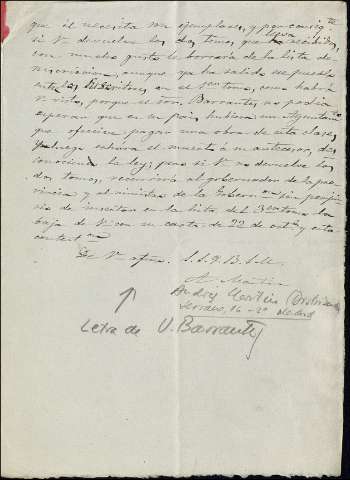 que él necesita sus ejemplares, y por consigte
si V. devuelve los dos tomos que lleva recibidos,
con mucho gusto le borraría de la lista de
suscrición, aunque ya ha salido su pueblo
entre los suscritores, en el 1er tomo, como habrá
V. visto, porque el Sor. Barrantes no podía
esperar que en su país hubiera un Ayuntamto
que ofreciera pagar una obra de esta clase,
y luego echara el muerto á su antecesor, des-
conociendo la ley; pero si V. no devuelve los
dos tomos, recurriré al gobernador de la pro-
vincia y al ministro de la Gobern.on sin perjui-
cio de insertar en la lista del 3er tomo la
baja de V. con su carta de 22 de oct.e y esta
contest.on
De V. afmo. S. S. Q. B. S. M.
A. Martín
Andrés Martín (Distribuidor)
Serrano, 16 - 2º Madrid
Letra de V. Barrantes